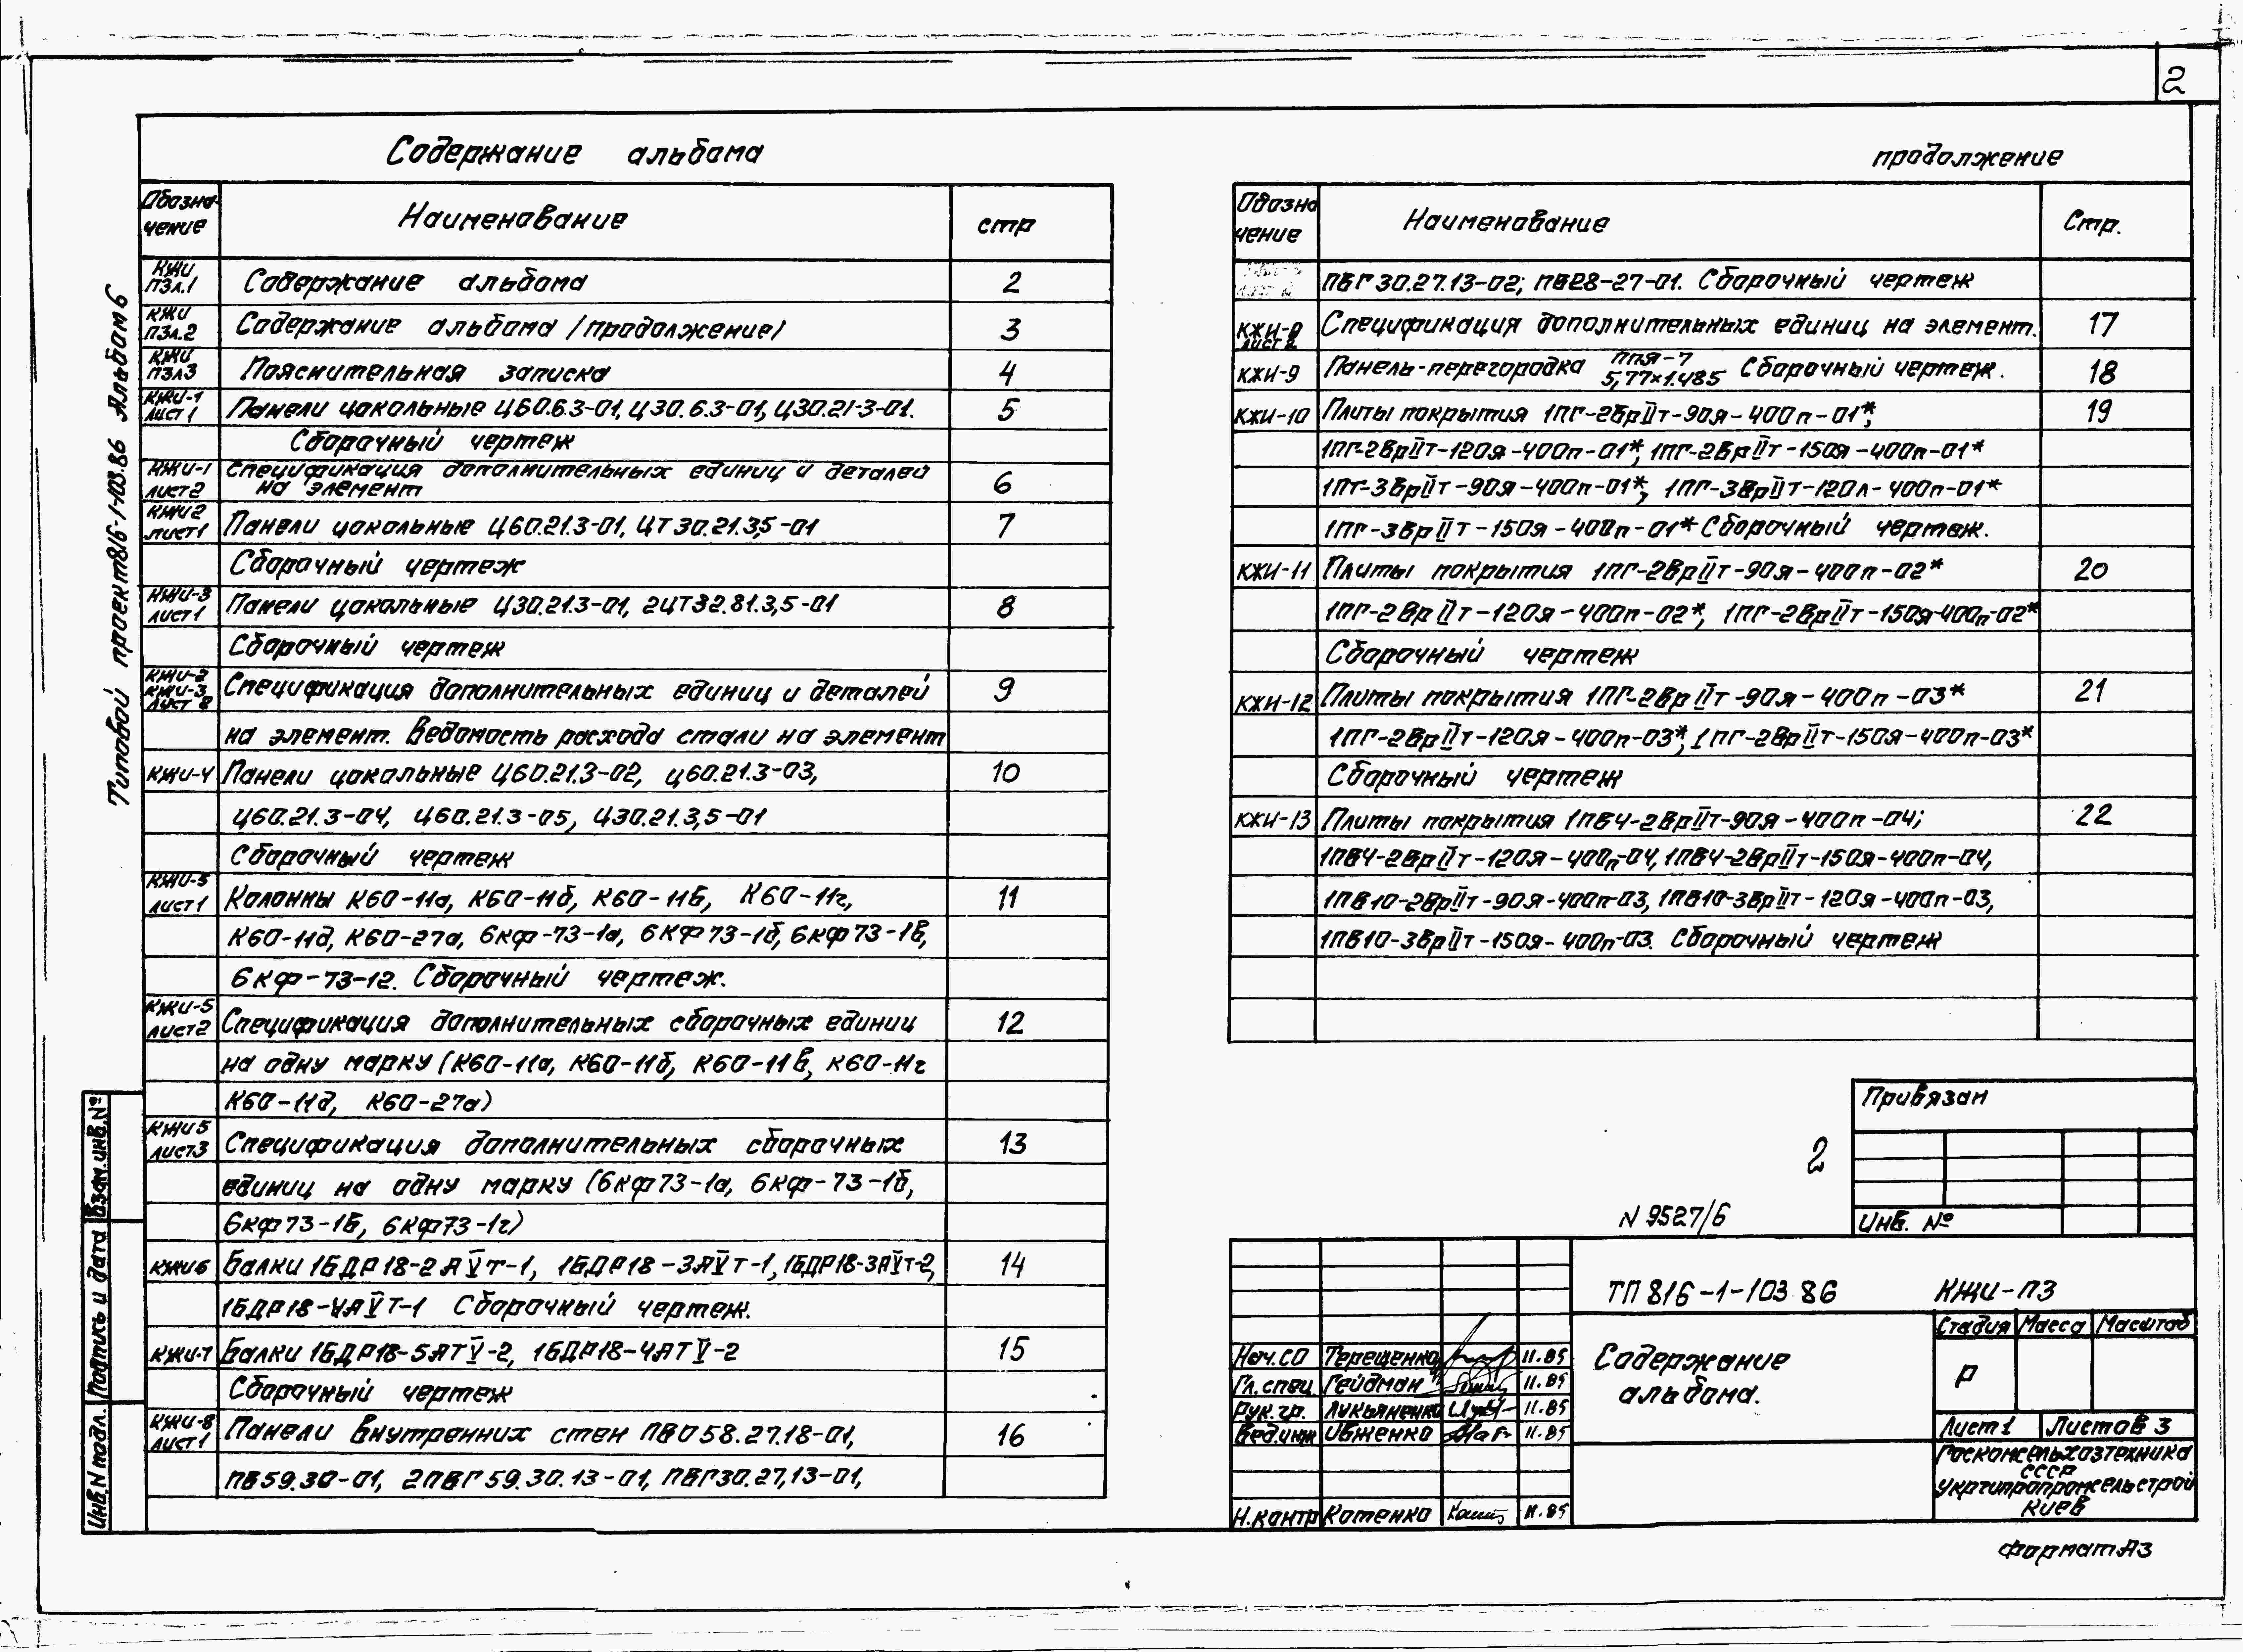 2
Содержание альбома
Типовой проект 816-1-103.86 Альбом 6
Обозна-
чение
Наименование
стр
КЖИ
ПЗл.1
Содержание альбома
2
КЖИ
ПЗл.2
Содержание альбома /продолжение/
3
КЖИ
ПЗл3
Пояснительная записка
4
КЖИ-1
лист 1
Панели цокольные Ц60.6.3-01, Ц30.6.3-01, Ц30.21-3-01.
5
Сборочный чертеж
КЖИ-1
лист 2
Спецификация дополнительных единиц и деталей
на элемент
6
КЖИ 2
лист 1
Панели цокольные Ц60.21.3-01, ЦТ 30.21.3,5-01
7
Сборочный чертеж
КЖИ-3
лист 1
Панели цокольные Ц30.21.3-01, 2ЦТ32.81.3,5-01
8
Сборочный чертеж
КЖИ-2
КЖИ-3
Спецификация дополнительных единиц и деталей
9
на элемент. Ведомость расхода стали на элемент
КЖИ-4
Панели цокольные Ц60.21.3-02, Ц60.21.3-03,
10
Ц60.21.3-04, Ц60.21.3-05, Ц30.21.3,5-01
Сборочный чертеж
КЖИ-5
лист 1
Колонны К60-11а, К60-11б, К60-11в, К60-11г,
11
К60-11д, К60-27а, 6кф-73-1а, 6кф73-1б, 6кф73-1в,
6кф-73-12. Сборочный чертеж.
КЖИ-5
лист 2
Спецификация дополнительных сборочных единиц
12
на одну марку (К60-11а, К60-11б, К60-11в, К60-11г
К60-11д, К60-27а)
КЖИ 5
лист 3
Спецификация дополнительных сборочных
13
единиц на одну марку (6кф73-1а, 6кф-73-1б,
6кф73-1в, 6кф73-1г)
КЖИ 6
Балки 1БДР18-2АVт-1, 1БДР18-3АVт-1, 1БДР18-3АVт-2,
14
1БДР18-4АVт-1 Сборочный чертеж.
КЖИ-7
Балки 1БДР18-5АТV-2, 1БДР18-4АТV-2
15
Сборочный чертеж
КЖИ-8
лист 1
Панели внутренних стен ПВО58.27.18-01,
16
ПВ59.30-01, 2ПВГ59.30.13-01, ПВГ30.27,13-01,
продолжение
Обозна
чение
Наименование
Стр.
ПВГ30.27.13-02; ПВ28-27-01. Сборочный чертеж
КЖИ-8
лист 2
Спецификация дополнительных единиц на элемент.
17
КЖИ-9
Панель-перегородка ППЯ-7 5,77×1.485 Сборочный чертеж.
18
КЖИ-10
Плиты покрытия 1ПГ-2ВрIIт-90я-400п-01*,
19
1ПГ-2ВрIIт-120я-400п-01*, 1ПГ-2ВрIIт-150я-400п-01*
1ПГ-3ВрIIт-90я-400п-01*, 1ПГ-3ВрIIт-120л-400п-01*
1ПГ-3ВрIIт-150я-400п-01* Сборочный чертеж.
КЖИ-11
Плиты покрытия 1ПГ-2ВрIIт-90я-400п-02*
20
1ПГ-2ВрIIт-120я-400п-02*, 1ПГ-2ВрIIт-150я-400п-02*
Сборочный чертеж
КЖИ-12
Плиты покрытия 1ПГ-2ВрIIт-90я-400п-03*
21
1ПГ-2ВрIIт-120я-400п-03*, 1ПГ-2ВрIIт-150я-400п-03*
Сборочный чертеж
КЖИ-13
Плиты покрытия 1ПВ4-2ВрIIт-90я-400п-04;
22
1ПВ4-2ВрIIт-120я-400п-04, 1ПВ4-2ВрIIт-150я-400п-04,
1ПВ10-2ВрIIт-90я-400п-03, 1ПВ10-3ВрIIт-120я-400п-03,
1ПВ10-3ВрIIт-150я-400п-03. Сборочный чертеж
Привязан
2
N 9527/6
Инв. №
ТП 816-1-103.86 КЖИ-ПЗ
Содержание
альбома.
Стадия Масса Масштаб
Р
Лист 1 Листов 3
Госкомсельхозтехника
СССР
Укргипропромсельстрой
Киев
Нач.СО Терещенко 11.85
Гл.спец. Гейдман 11.85
Рук.гр. Лукьяненко 11.85
Вед.инж Ивженко 11.85
Н.контр Котенко 11.85
Инв.N подл. Подпись и дата Взам.инв.№
Формат А3